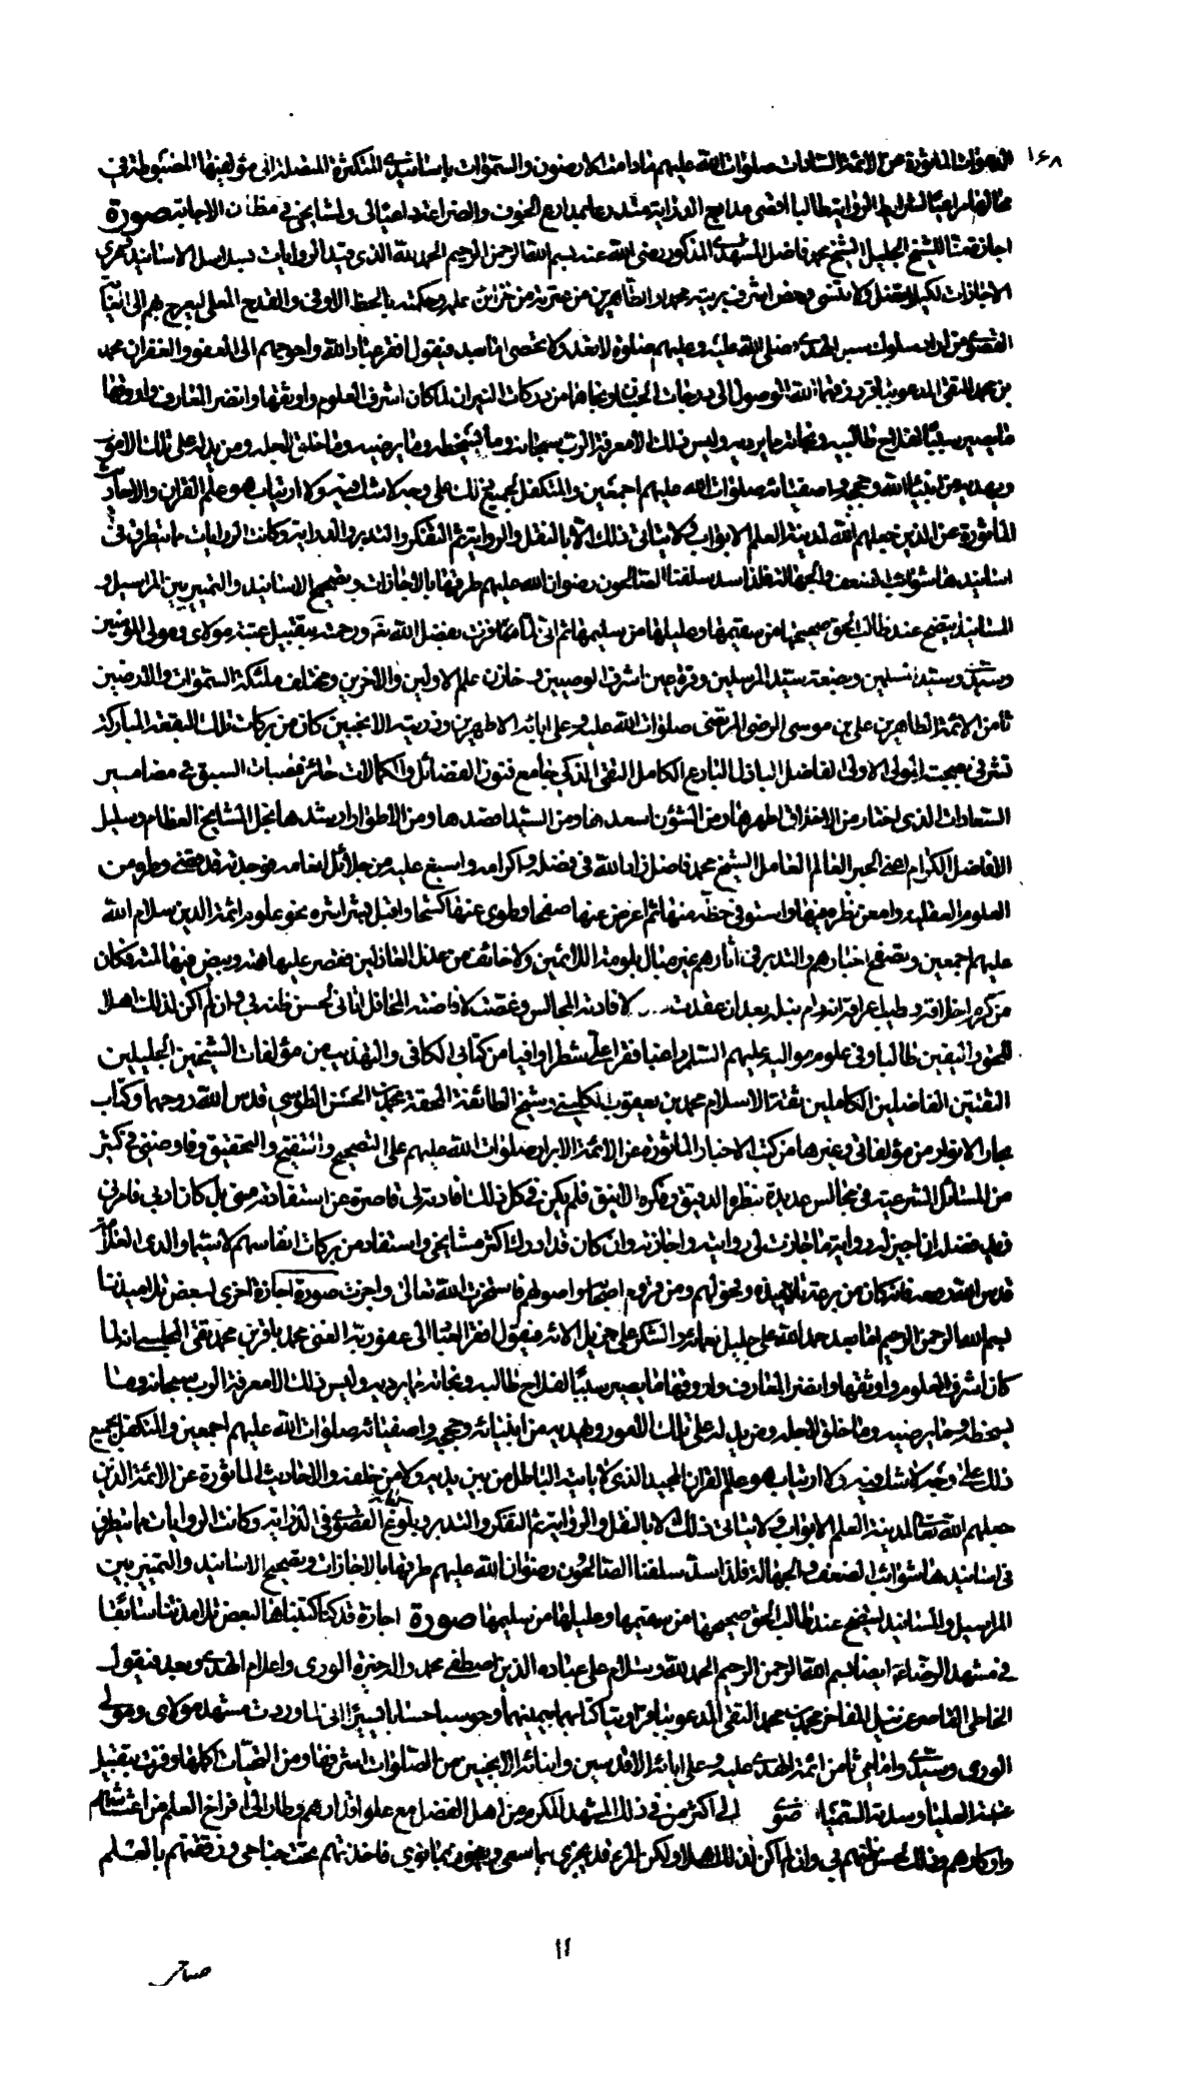 ١٦٨
الدعوات المأثورة عن الائمة السادات صلوات الله عليهم مادامت الارضون والسموات باسانيدي المتكثرة المتصلة الى مؤلفيها المضبوطة في
محالها مراعيا لشرايط الرواية طالبا اقصى مدارج الدراية متدرعا بمدارع الخوف والضراعة داعيا لى ولمشايخي في مظان الاجابة صورة
اجازتنا للشيخ الجليل الشيخ محمد فاضل المشهدي المذكور رضى الله عنه بسم الله الرحمن الرحيم الحمد لله الذي قيد الروايات بسلاسل الاسانيد
الاجازات لكيلا تضل ولا تنسى وخص اشرف بريته محمدا والطاهرين من عترته من خزائن علمه وحكمته بالحظ الاوفى والقدح المعلى ليعرج بهم الى
القصوى من اراد سلوك سبيل الهدى صلى الله عليه وعليهم صلوة لا تعد ولا تحصى اما بعد فيقول افقر عباد الله واحوجهم الى العفو والغفران محمد
بن محمد التقى المدعو بباقر رزقهما الله الوصول الى درجات الجنان ونجاهما من دركات النيران لما كان اشرف العلوم واوثقها وانضر المعارف واورقها
ما يصير سببا لفلاح طالبيه ونجاته مما يرديه وليس ذلك الا معرفة الرب سبحانه وما يسخطه وما يرضيه وما خلق لاجله ومن يدله على تلك الامور
ويهديه من انبياء الله وحججه واصفيائه صلوات الله عليهم اجمعين والمتكفل لجميع ذلك على وجه لا شك فيه ولا ارتياب هو علم القرآن والاحاديث
المأثورة عن الذين جعلهم الله لمدينة العلم الابواب ولا يتأتى ذلك الا بالنقل والرواية ثم التفكر والتدبر والدراية وكانت الروايات مما يتطرق في
اسانيدها شوائب الضعف والجهالة فلذا سد سلفنا الصالحون رضوان الله عليهم طرقها بالاجازات وتصحيح الاسانيد والتمييز بين المراسيل و
المسانيد ليتضح عند طالب الحق صحيحها من سقيمها وعليلها من سليمها ثم انى لما فزت بفضل الله تعالى ورحمته بتقبيل عتبة مولاى ومولى المؤمنين
وسيدى وسيد المسلمين وبضعة سيد المرسلين وقرة عين اشرف الوصيين وخازن علم الاولين والآخرين ومختلف ملئكة السموات والارضين
ثامن الائمة الطاهرين على بن موسى الرضى المرتضى صلوات الله عليه وعلى ابائه الاطهرين وذريته الانجبين كان من بركات تلك البقعة المباركة
تشرفى بصحبة المولى الاولى الفاضل الباذل البارع الكامل التقى الذكى جامع فنون الفضائل والكمالات حائز قصبات السبق في مضامير
السعادات الذى اختار من الاخلاق اطهرها ومن الشؤن اسعدها ومن السبل اقصدها ومن الاطوار ارشدها نجل المشايخ العظام وسليل
الافاضل الكرام اعنى الحبر العالم العامل الشيخ محمد فاضل زاد الله في فضله واكرامه واسبغ عليه من جلائل انعامه فوجدته قد قضى وطره من
العلوم العقلية وامعن نظره فيها واستوفى حظه منها ثم اعرض عنها صفحا وطوى عنها كشحا واقبل بشراشره نحو علوم ائمة الدين سلام الله
عليهم اجمعين وتصفح اخبارهم والتدبر في آثارهم غير مبال بلومة اللائمين ولا خائف من عذل العاذلين فقصر عليها همته وبيض فيها لمته فكان
من كرم اخلاقه وطيب اعراقه بعد ان عقدت لافادته المجالس وغصت لافاضته المحافل اتانى لحسن ظنه بى وان لم اكن لذلك اهلا
للحق واليقين طالبا وفى علوم مواليه عليهم السلام راغبا فقرأ علىّ شطرا وافيا من كتابى الكافى والتهذيب من مؤلفات الشيخين الجليلين
الثقتين الفاضلين الكاملين ثقة الاسلام محمد بن يعقوب الكلينى وشيخ الطائفة المحقة محمد بن الحسن الطوسي قدس الله روحهما وكتاب
بحار الانوار من مؤلفاتى وغيرها من كتب الاخبار المأثورة عن الائمة الابرار صلوات الله عليهم على التصحيح والتنقيح والتحقيق وفاوضنى في كثير
من المسائل الشرعية في مجالس عديدة بنظره الدقيق وفكره الانيق فلم يكن في كل ذلك افادته لى قاصرة عن استفادته منى بل كان اربى فامرنى
فضله ان اجيز له رواية ما جازت لى روايته واجازته وان كان قد ادرك اكثر مشايخى واستفاد من بركات انفاسهم لاسيما والدى العلامة
قدس الله روحه فانه كان من تلاميذه ومن فروع اصولهم فاستخرت الله تعالى واجزت صورة اجازة اخرى لبعض تلاميذنا
بسم الله الرحمن الرحيم اما بعد حمد الله على جليل نعمائه والشكر على جزيل آلائه فيقول افقر العباد الى عفو ربه الغنى محمد باقر بن محمد تقى المجلسى انه لما
كان اشرف العلوم واوثقها وانضر المعارف واورقها ما يصير سببا لفلاح طالبه ونجاته مما يرديه وليس ذلك الا معرفة الرب سبحانه وما
يسخطه وما يرضيه وما خلق لاجله ومن يدله على تلك الامور ويهديه من انبيائه وحججه واصفيائه صلوات الله عليهم اجمعين والمتكفل لجميع
ذلك على وجه لا شك فيه ولا ارتياب هو علم القرآن المجيد الذى لا يأتيه الباطل من بين يديه ولا من خلفه والاحاديث المأثورة عن الائمة الذين
جعلهم الله تعالى لمدينة العلم الابواب ولا يتأتى ذلك الا بالنقل والرواية ثم التفكر والتدبر وبلوغ الغاية القصوى في الدراية وكانت الروايات مما يتطرق
في اسانيدها شوائب الضعف والجهالة فلذا سد سلفنا الصالحون رضوان الله عليهم طرقها بالاجازات وتصحيح الاسانيد والتمييز بين
المراسيل والمسانيد ليتضح عند طالب الحق صحيحها من سقيمها وعليلها من سليمها صورة اجازة قد كنا كتبناها لبعض تلامذتنا سابقا
في مشهد الرضا ع ايضا بسم الله الرحمن الرحيم الحمد لله وسلام على عباده الذين اصطفى محمد وآله خيرة الورى واعلام الهدى وبعد فيقول
الخاطى القاصر عن نيل المفاخر محمد بن محمد التقى المدعو بباقر اوتيا كتابهما بيمينهما وحوسبا حسابا يسيرا انى لما وردت مشهد مولاى ومولى
الورى وسيدى وامامى ثامن ائمة الهدى عليه وعلى ابائه الاقدسين وابنائه الانجبين من الصلوات اشرفها ومن التحيات اكملها وفزت بتقبيل
عتبته العليا وسدته ضوى الى اكثر من في ذلك المشهد المكرم من اهل الفضل مع علو اقدارهم وطار الى افراخ العلم من اعشاشهم
واوكارهم وذلك لحسن ظنهم بى وان لم اكن لذلك اهلا ولكن المرء قد يجزى بما سعى ويفوز بما نوى فاخذتهم تحت جناحى وزققتهم بالعلم
١١
صباحى